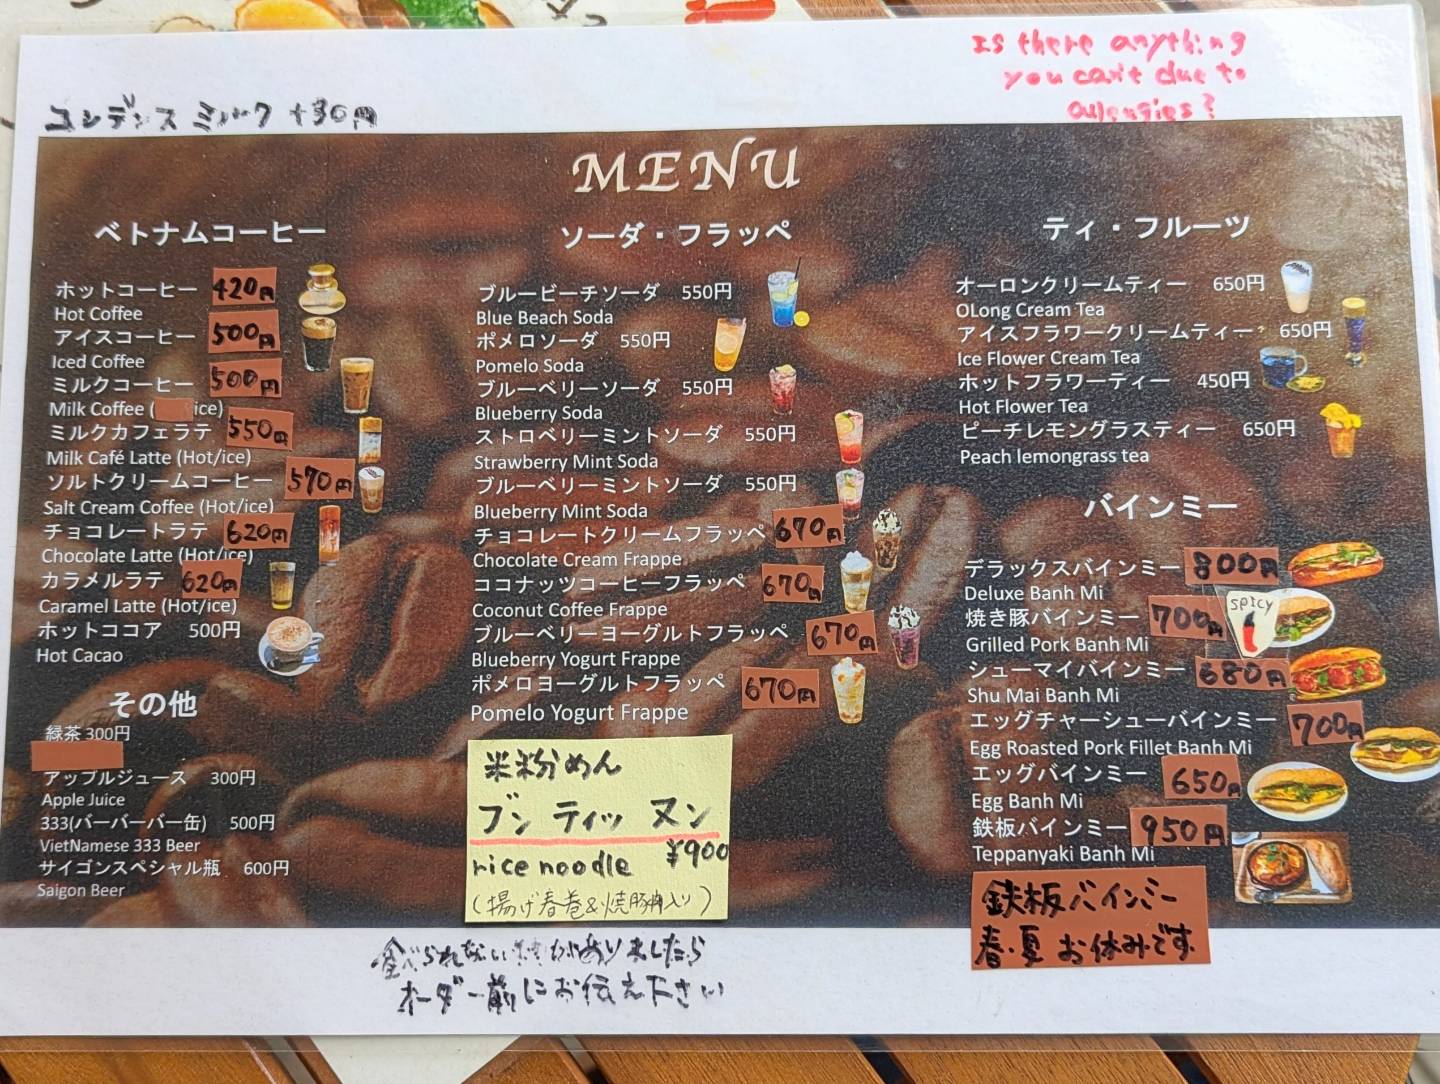 コンデンスミルク +30円
Is there anything
you can't due to
allergies?
MENU
ベトナムコーヒー
ホットコーヒー 420円
Hot Coffee
アイスコーヒー 500円
Iced Coffee
ミルクコーヒー 500円
Milk Coffee ( ice)
ミルクカフェラテ 550円
Milk Café Latte (Hot/ice)
ソルトクリームコーヒー 570円
Salt Cream Coffee (Hot/ice)
チョコレートラテ 620円
Chocolate Latte (Hot/ice)
カラメルラテ 620円
Caramel Latte (Hot/ice)
ホットココア 500円
Hot Cacao
その他
緑茶 300円
アップルジュース 300円
Apple Juice
333(バーバーバー缶) 500円
VietNamese 333 Beer
サイゴンスペシャル瓶 600円
Saigon Beer
ソーダ・フラッペ
ブルービーチソーダ 550円
Blue Beach Soda
ポメロソーダ 550円
Pomelo Soda
ブルーベリーソーダ 550円
Blueberry Soda
ストロベリーミントソーダ 550円
Strawberry Mint Soda
ブルーベリーミントソーダ 550円
Blueberry Mint Soda
チョコレートクリームフラッペ 670円
Chocolate Cream Frappe
ココナッツコーヒーフラッペ 670円
Coconut Coffee Frappe
ブルーベリーヨーグルトフラッペ 670円
Blueberry Yogurt Frappe
ポメロヨーグルトフラッペ 670円
Pomelo Yogurt Frappe
米粉めん
ブン ティッ ヌン
rice noodle ¥900
(揚げ春巻&焼豚肉入り)
ティ・フルーツ
オーロンクリームティー 650円
OLong Cream Tea
アイスフラワークリームティー 650円
Ice Flower Cream Tea
ホットフラワーティー 450円
Hot Flower Tea
ピーチレモングラスティー 650円
Peach lemongrass tea
バインミー
デラックスバインミー 800円
Deluxe Banh Mi
焼き豚バインミー 700円 spicy
Grilled Pork Banh Mi
シューマイバインミー 680円
Shu Mai Banh Mi
エッグチャーシューバインミー 700円
Egg Roasted Pork Fillet Banh Mi
エッグバインミー 650円
Egg Banh Mi
鉄板バインミー 950円
Teppanyaki Banh Mi
鉄板バインミー
春・夏 お休みです
食べられない がありましたら
オーダー前にお伝え下さい